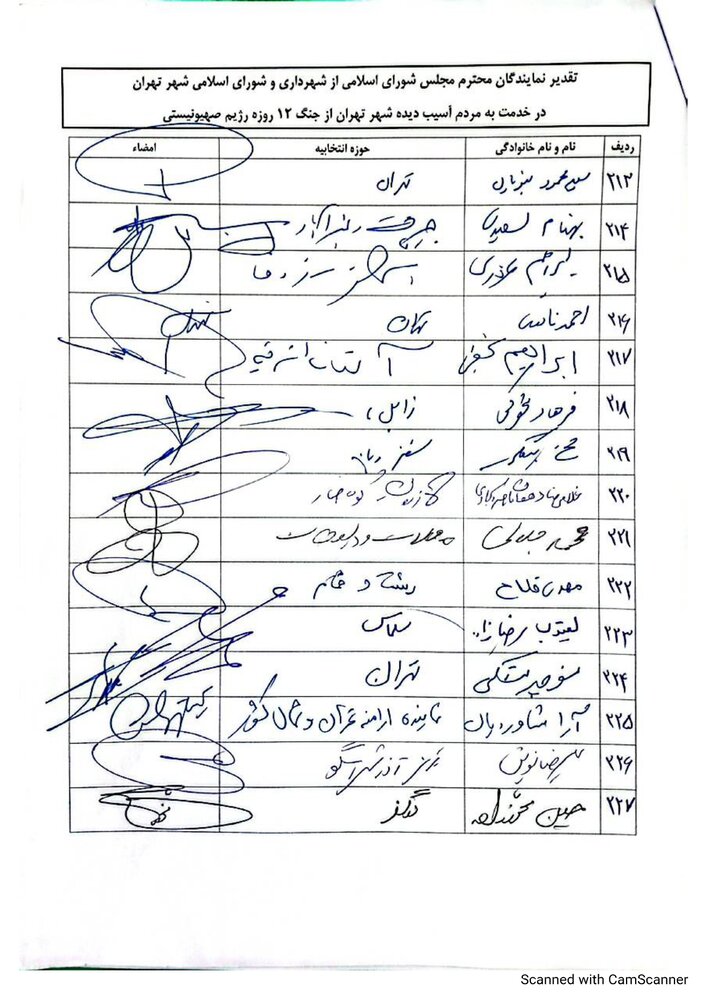 تقدیر نمایندگان محترم مجلس شورای اسلامی از شهرداری و شورای اسلامی شهر تهران
در خدمت به مردم آسیب دیده شهر تهران از جنگ ۱۲ روزه رژیم صهیونیستی
ردیف نام و نام خانوادگی حوزه انتخابیه امضاء
۲۱۳ سید محمود نبویان تهران
۲۱۴ بهنام سعیدی جیرفت و عنبرآباد
۲۱۵
۲۱۶ احمد نادری تهران
۲۱۷ ابراهیم نجفی آستانه اشرفیه
۲۱۸ فرهاد طهماسبی
۲۱۹ محسن بیگلری سقز و بانه
۲۲۰ غلامرضا دهقان ناصرآبادی کازرون و کوه چنار
۲۲۱ محمد جلالی محلات و دلیجان
۲۲۲ مهدی فلاح رشت و خمام
۲۲۳ یعقوب رضازاده سلماس
۲۲۴ منوچهر متکی تهران
۲۲۵ آرا شاوردیان نماینده ارامنه تهران و شمال کشور
۲۲۶ علیرضا نوین تبریز آذرشهر اسکو
۲۲۷ حسین
Scanned with CamScanner